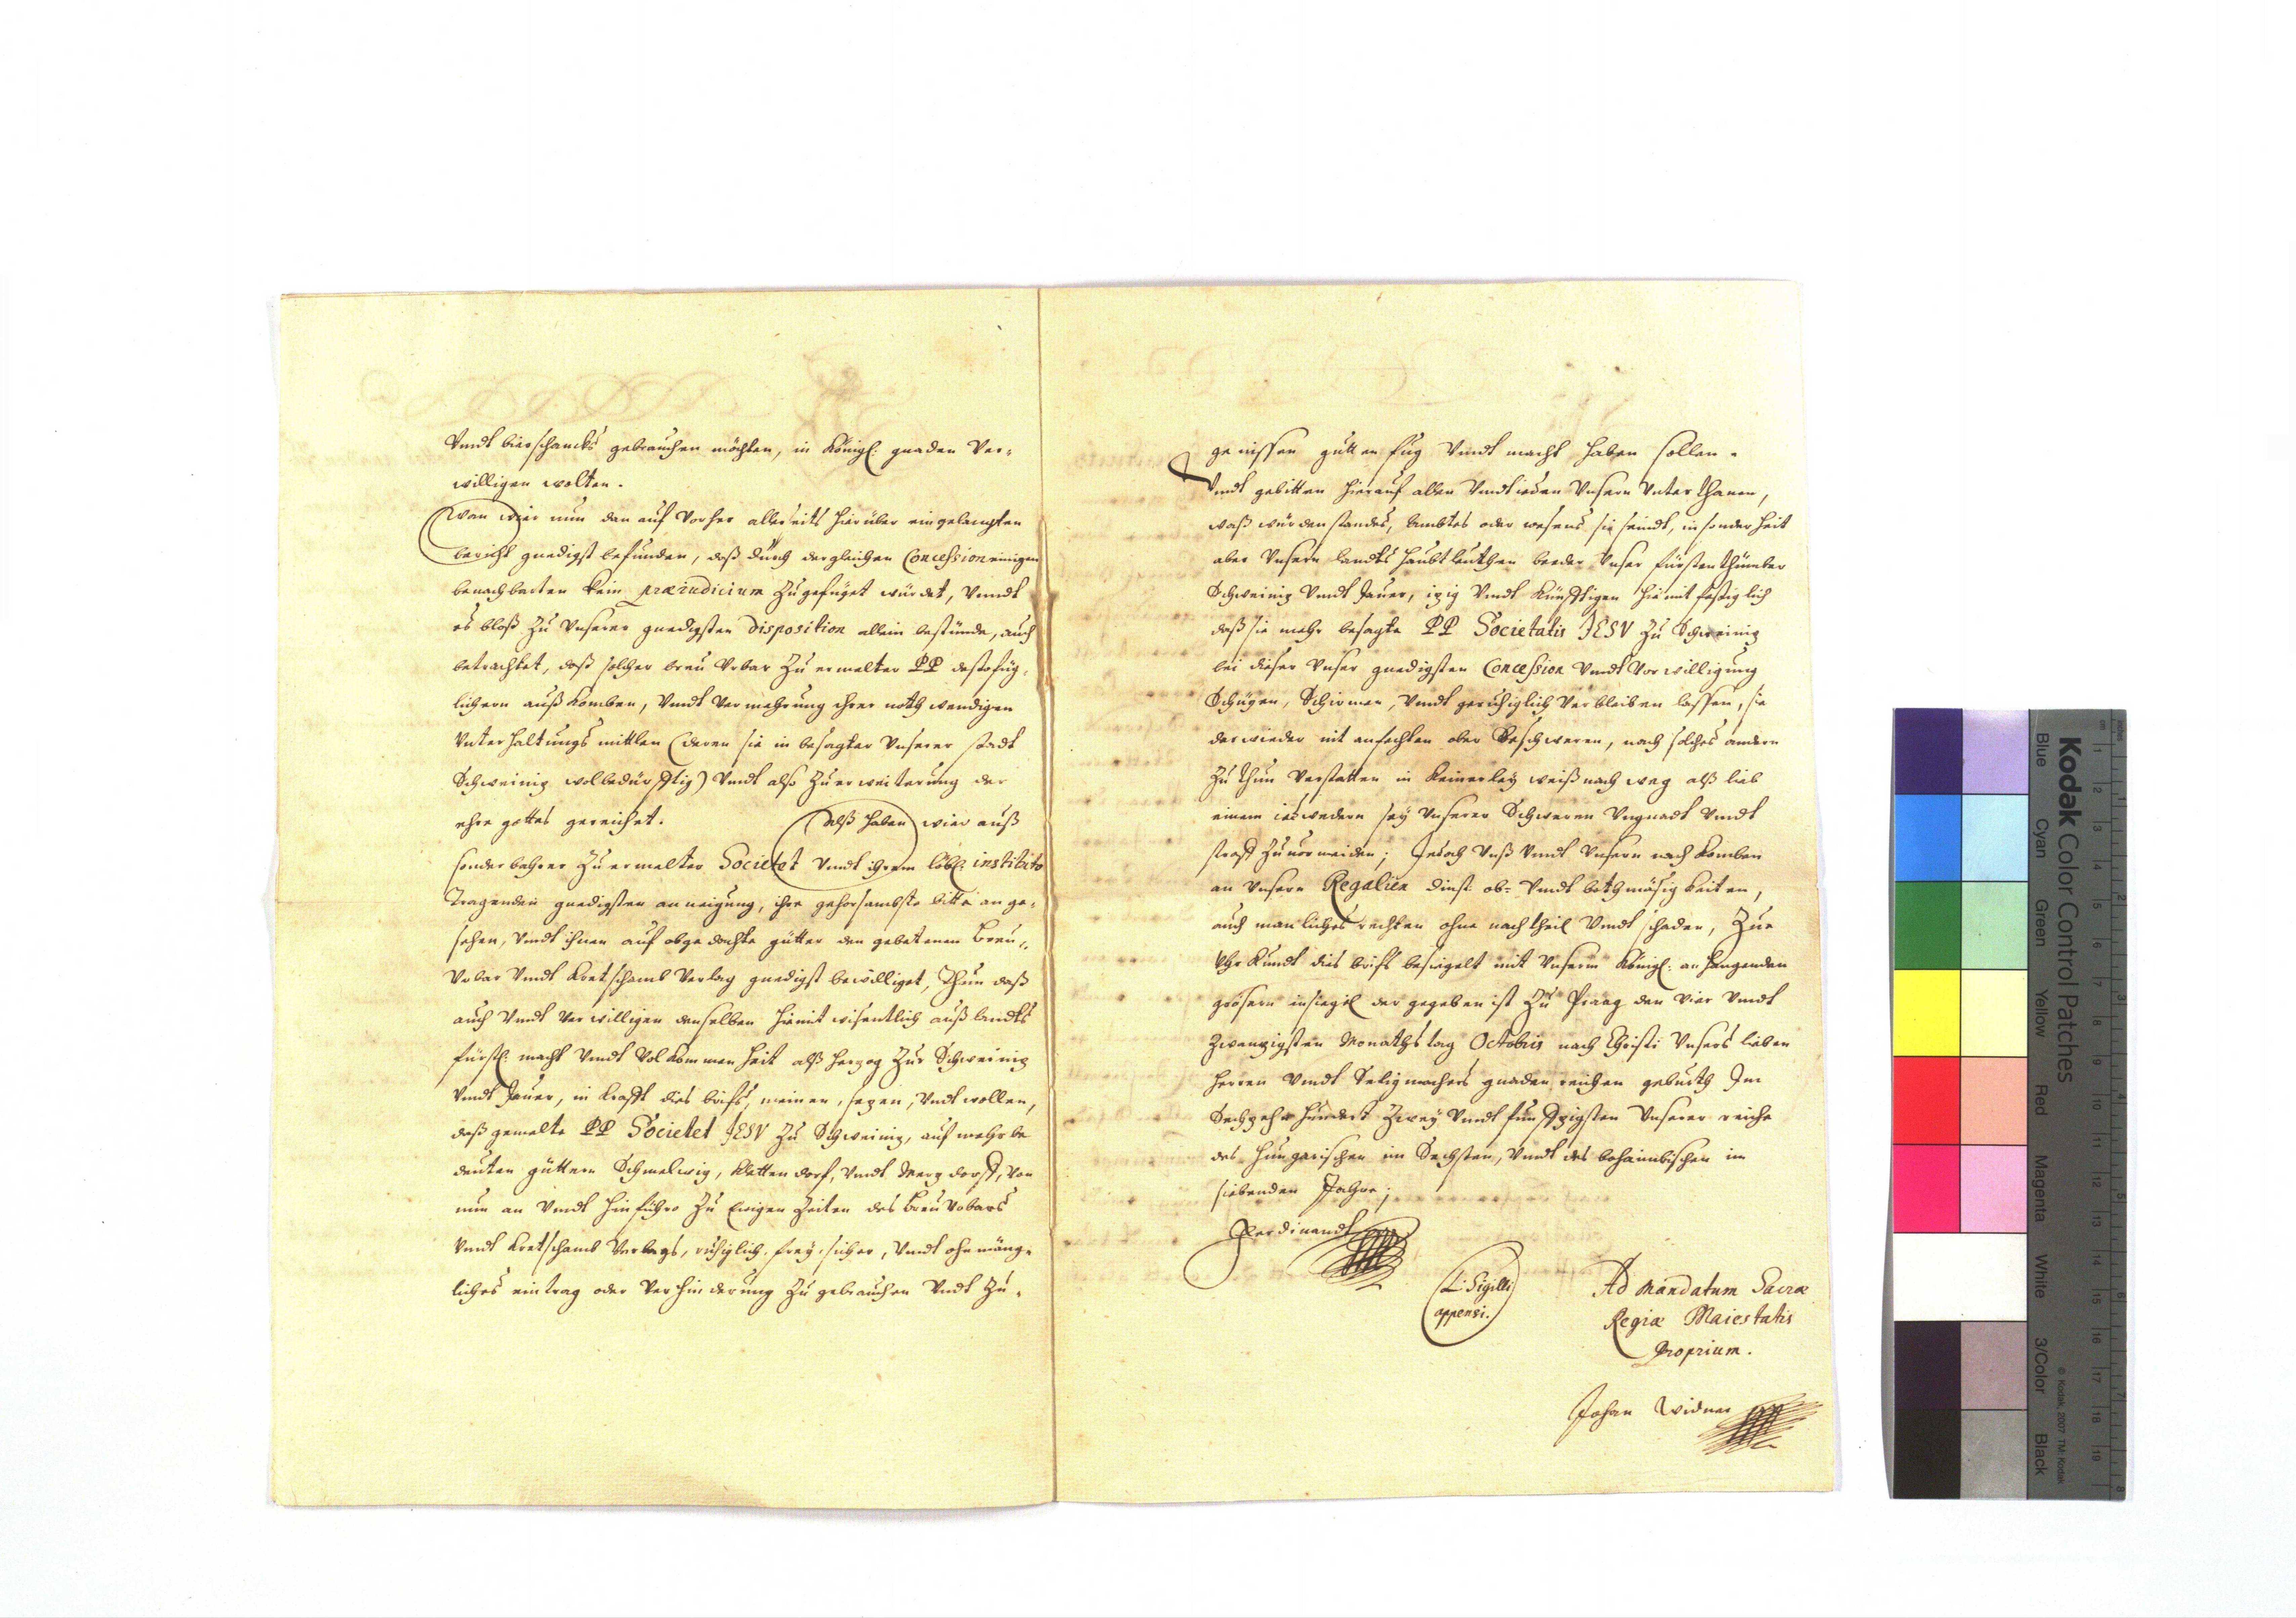 Vndt bierschancks gebrauchen möchten, in Königl: gnaden Ver-
willigen wolten.
Wan wier nun dan auf Vorher allerseits hierüber eingelangten
bericht gnedigst befunden, daß durch dergleichen Concession einigen
benachbarten kein præiudicium Zugefüget würdet, Vnndt
es bloß Zu Vnserer gnedigsten Disposition allein bestünde, auch
betrachtet, daß solcher breu Vrbar Zu ermelter PP destofüg-
lichern außkomben, Vndt Vermehrung ihrer nothwendigen
Vnterhaltungs mittlen (deren sie in besagter Vnserer stadt
Schweiniz wolbedürfftig) Vndt also Zuerweiterung der
ehre gottes gereichet. Alß haben wier auß
sonderbahrer Zu ermelter Societet Vndt ihrem löbl: instituto
Tragenden gnedigsten anneigung, ihre gehorsambste bitte ange-
sehen, Vndt ihnen auf obgedachte gütter den gebetenen Breu-
Vrbar Vndt Kretschamb Verlag gnedigst bewilliget, Thun daß
auch Vndt Verwilligen denselben hiemit wisentlich auß landts
fürstl: macht Vndt Volkommenheit alß Herzog Zur Schweiniz
Vndt Jauer, in krafft dies briefs, meinen, sezen, Vndt wollen,
daß gemelte PP Societet JESV Zu Schweiniz, auf mehr be
deuten güttern Schmelwiz, Klettendorf, Vndt Merzdorff, Von
nun an Vndt hinführo Zu Ewigen Zeiten des BreuVrbars
Vndt Kretschamb Verlags, ruhiglich, frey, sicher, Vndt ohn mäng-
liches eintrag oder Verhinderung Zu gebrauchen Vndt Zu-
genissen gutten fug Vndt macht haben sollen.
Vndt gebitten hierauf allen Vndt ieden Vnsern Vnterthanen,
waß würden standes, Ambtes oder wesens sie seindt, insonderheit
aber Vnsern landts Haubtleuthen beeder Vnser fürstenthümber
Schweiniz Vndt Jauer, izig Vndt Künfftigen hiemit festiglich
daß sie mehr besagte PP Societatis JESV Zu Schweiniz
bei dieser Vnser gnedigsten Concession Vndt Vorwilligung
Schüzen, Schirmen, Vndt geruhiglich Verbleiben lassen, sie
derwieder nit anfechten oder beschweren, noch solches andern
Zu thun Verstatten in keinerley weiß noch weg alß lieb
einem iedwedern sey Vnserer Schweren Vngnadt Vndt
straff Zuuormeiden; Jedoch Vnß Vndt Vnsern nachkomben
an Vnsern Regalien dinst- ob- Vndt bothmäsigkeiten,
auch manliches rechten ohne nachtheil Vndt schaden, Zur
Vhrkundt dis brifs besiegelt mit Vnserm Königl: anhangenden
grösern insiegel der gegeben ist Zu Praag den Vier Vndt
Zwanzigsten Monathstag Octobris nach Christi Vnsers lieben
Herren Vndt Seligmachers gnadenreichen geburth Im
Sechzehn hundert Zwey Vndt funffzigsten Vnserer reiche
des Hungarischen im Sechsten, Vndt des bohaimbischen im
siebenden Jahre;
Ferdinandt
L: Sigilli
appensi.
Ad Mandatum Sacræ
Regiæ Maiestatis
Proprium.
Johan Widner
Kodak Color Control Patches
Blue Cyan Green Yellow Red Magenta White 3/Color Black
© Kodak, 2007 TM: Kodak